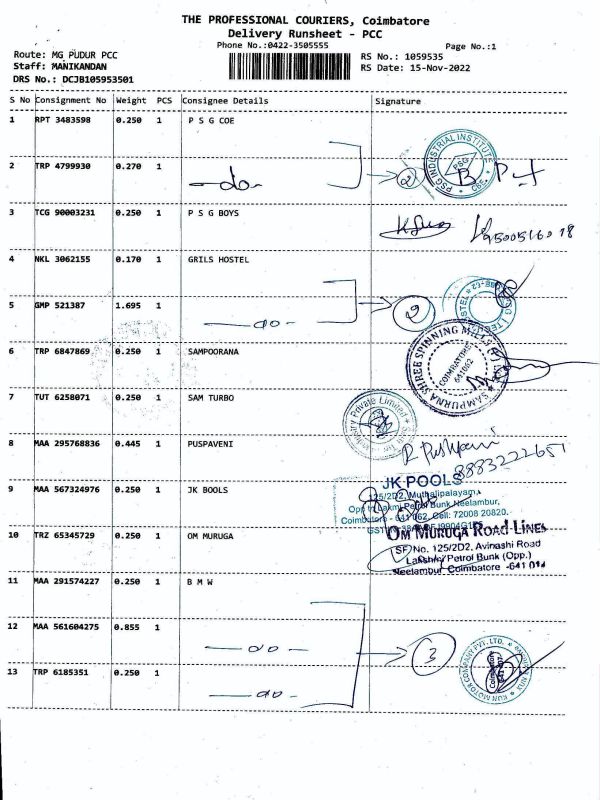 THE PROFESSIONAL COURIERS, Coimbatore
Delivery Runsheet - PCC
Phone No.:0422-3505555
Page No.:1
Route: MG PUDUR PCC
RS No.: 1059535
Staff: MANIKANDAN
RS Date: 15-Nov-2022
DRS No.: DCJB105953501
S No Consignment No Weight PCS Consignee Details Signature
1 RPT 3483598 0.250 1 P S G COE
PSG INDUSTRIAL INSTITUTE
PSG
2 TRP 4799930 0.270 1
-do- 2
3 TCG 90003231 0.250 1 P S G BOYS
4 NKL 3062155 0.170 1 GRILS HOSTEL
5 GMP 521387 1.695 1
-do- 2
6 TRP 6847869 0.250 1 SAMPOORANA
SAMPURNA SHREE SPINNING MILLS
COIMBATORE
641062
7 TUT 6258071 0.250 1 SAM TURBO
Private Limited
8 MAA 295768836 0.445 1 PUSPAVENI
R. Pushpaveni
8883222651
9 MAA 567324976 0.250 1 JK BOOLS
JK POOLS
125/2D2, Muthalipalayam,
Opp to Lakmi Petrol Bunk, Neelambur,
Coimbatore - 641 062, Cell: 72008 20820.
10 TRZ 65345729 0.250 1 OM MURUGA
OM MURUGA ROAD LINES
SF No. 125/2D2, Avinashi Road
Lakshmi Petrol Bunk (Opp.)
Neelambur Coimbatore -641 014
11 MAA 291574227 0.250 1 B M W
12 MAA 561604275 0.855 1
-do- 3
13 TRP 6185351 0.250 1
-do-
KUN MOTOR COMPANY PVT. LTD.
Coimbatore